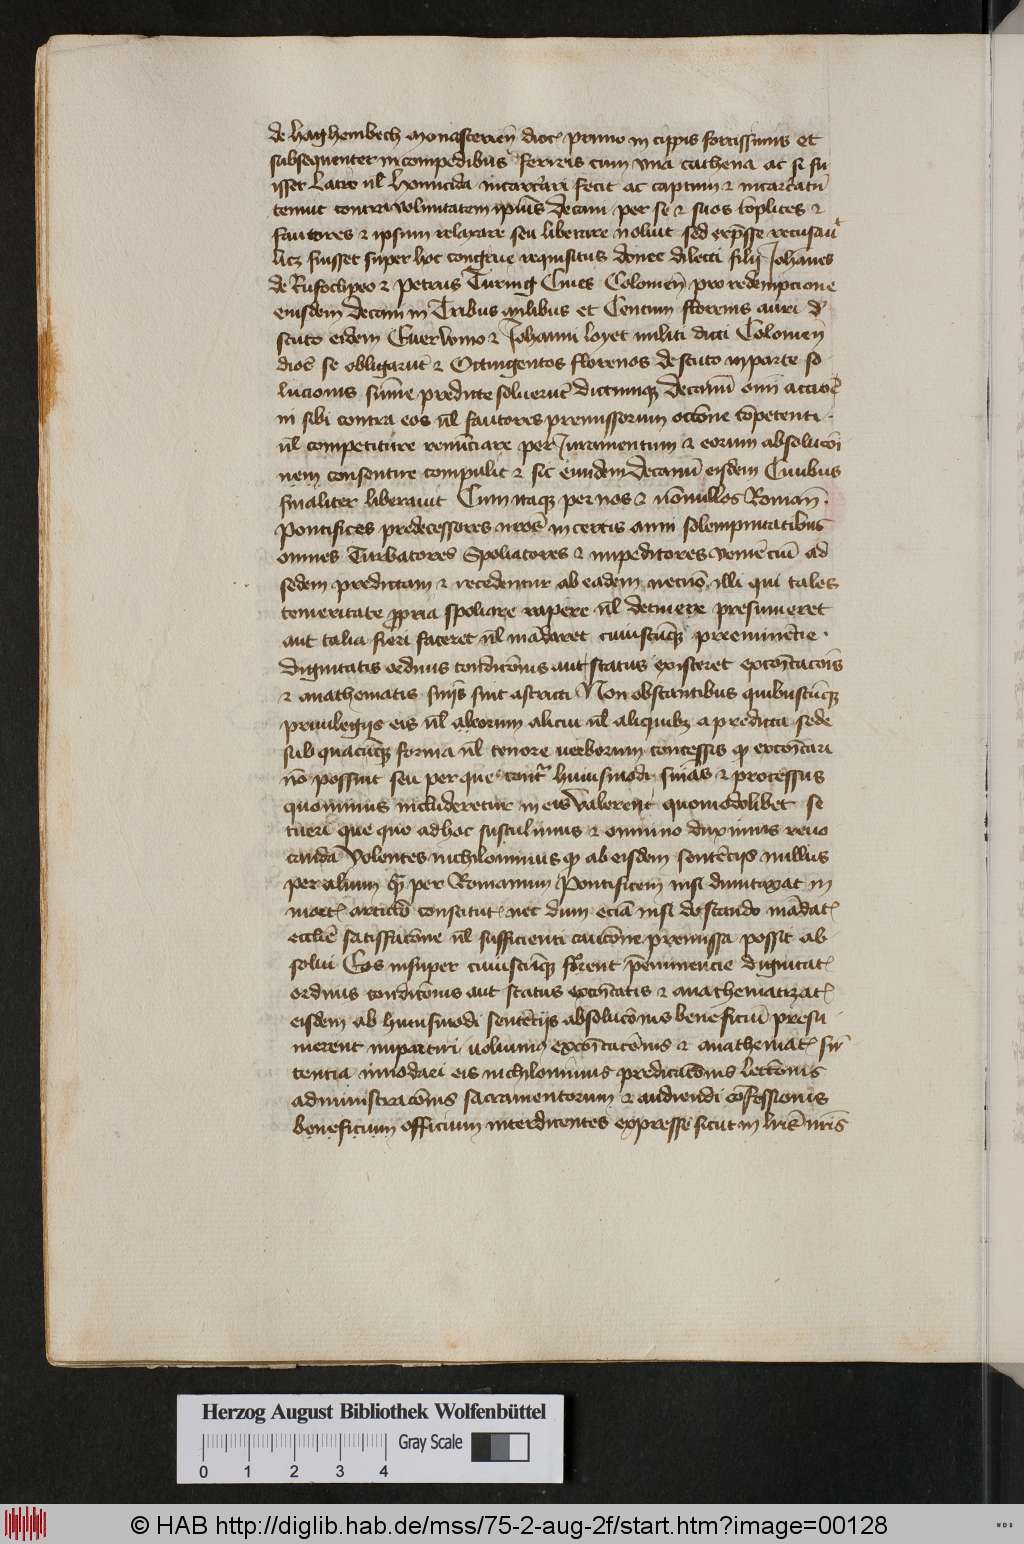 de Haghembech monasterien̄ dioc̄ primo in cippis fortissimis et
subsequenter in compedibus ferreis cum vna cathena ac si fu
isset latro ul̄ homicida incarc̄ari fecit ac captum ⁊ incarc̄atū
tenuit contra voluntatem ipius̄ decani per se ⁊ suos cōplices ⁊
fautores ⁊ ipsum relaxare seu liberare noluit sed exp̄sse recusauᵗ
licꝫ fuisset super hoc congrue requisitus donec dilecti filij Johānes
de Petrus Turing Ciues Colonien̄ pro redempcione
eiusdem decani in Tribus milibus et Centum florenis auri de
scuto eidem Euerwino ⁊ Johanni loyet militi dicti Colonien̄
dioc̄ se obligarūt ⁊ Octingentos florenos de scuto in parte so
lucionis sūme predicte soluerūt dictumqꝫ decanū omī accioē
ni sibi contra eos ul̄ fautores premissorum occōne cōpetenti
ul̄ competiture renūciare per Juramentum ⁊ eorum absolucōi
nem consentire compulit ⁊ sic eundem decanū eisdem Ciuibus
finaliter liberauit Cum itaqꝫ per nos ⁊ nōnullos Roman̄
Pontifices predecessores nr̄os in certis anni solempnitatibus
omnes Turbatores Spoliatores ⁊ impeditores veniēciū ad
sedem predictam ⁊ recedencium ab eadem necnō illi qui tales
temeritate ꝓpria spoliare rapere ul̄ detinere presumeret
aut talia fieri faceret ul̄ mādaret cuiuscūqꝫ preeminēcie
dignitatis ordinis condicōnis aut status existeret excōicacōis
⁊ anathematis sn̄ijs sint astricti Non obstantibus quibuscūqꝫ
priuilegijs eis ul̄ alteorum alicui ul̄ aliquibꝫ a predicta sede
sub quacūqꝫ forma ul̄ tenore verborum concessis ꝙ excōicari
nō possint seu per que contᵃ huiusmodi sn̄ias ⁊ processus
quominus includeretur in eis valerent quomodolibet se
tueri que quo ad hoc sustulimus ⁊ omnino duximus reuo
canda Volentes nichilominus ꝙ ab eisdem sentēcijs nullus
per alium qᵃ̄ per Romanum Pontificem nisi dumtaxat in
mort̄ articlo constitut̄ nec dum eciā nisi de stando mādat̄
eccliē satisfacōne ul̄ sufficienti caucōne premissa possit ab
solui Eos insuper cuiuscūqꝫ forent p̄eminencie dignitat̄
ordinis condicōnis aut status excōicatis ⁊ anathematizat̄
eisdem ab huiusmodi sentēcijs absolucōnis beneficiū presu
merent impartiri uoluimꝯ excōicacōnis ⁊ anathemat̄ sn̄
tencia innodari eis nichilominus predicacōnis lectōnis
administracōnis sacramentorum ⁊ audiendi cōfessionis
beneficium officium interdicentes expresse sicut in lr̄is nr̄is
Herzog August Bibliothek Wolfenbüttel
Gray Scale
0 1 2 3 4
© HAB http://diglib.hab.de/mss/75-2-aug-2f/start.htm?image=00128